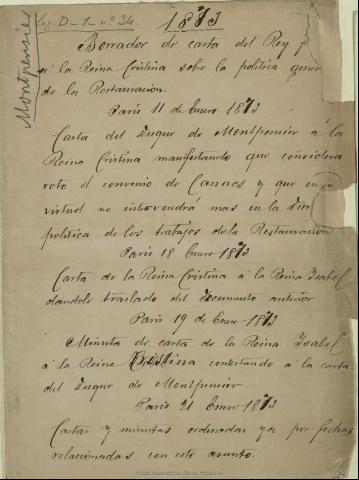 Leg. D-1-nº 34.
Montpensier
1873
Borrador de carta del Rey
á la Reina Cristina sobre la política
de la Restauracion.
Paris 11 de Enero 1873
Carta del Duque de Montpensier á la
Reina Cristina manifestando que considera
roto el convenio de Cannes y que en
virtud no intervendrá mas en la
política de los trabajos de la Restauración
Paris 18 Enero 1873
Carta de la Reina Cristina á la Reina Isabel
dandole traslado del documento anterior
Paris 19 de Enero 1873
Minuta de carta de la Reina Isabel
á la Reina Cristina contestando á la carta
del Duque de Montpensier
Paris 21 Enero 1873
Cartas y minutas ordenadas ya por fechas
relacionadas con este asunto.
Real Academia de la Historia